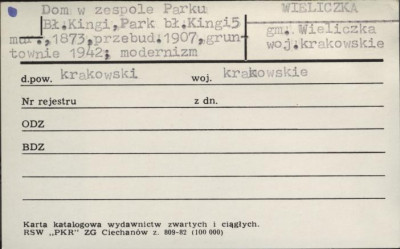 Dom w zespole Parku
Bł.Kingi,Park bł.Kingi5
mur.,1873,przebud.1907,grun-
townie 1942; modernizm
WIELICZKA
gm. Wieliczka
woj.krakowskie
d.pow. krakowski woj. krakowskie
Nr rejestru z dn.
ODZ
BDZ
Karta katalogowa wydawnictw zwartych i ciągłych.
RSW „PKR" ZG Ciechanów z. 809-82 (100 000)